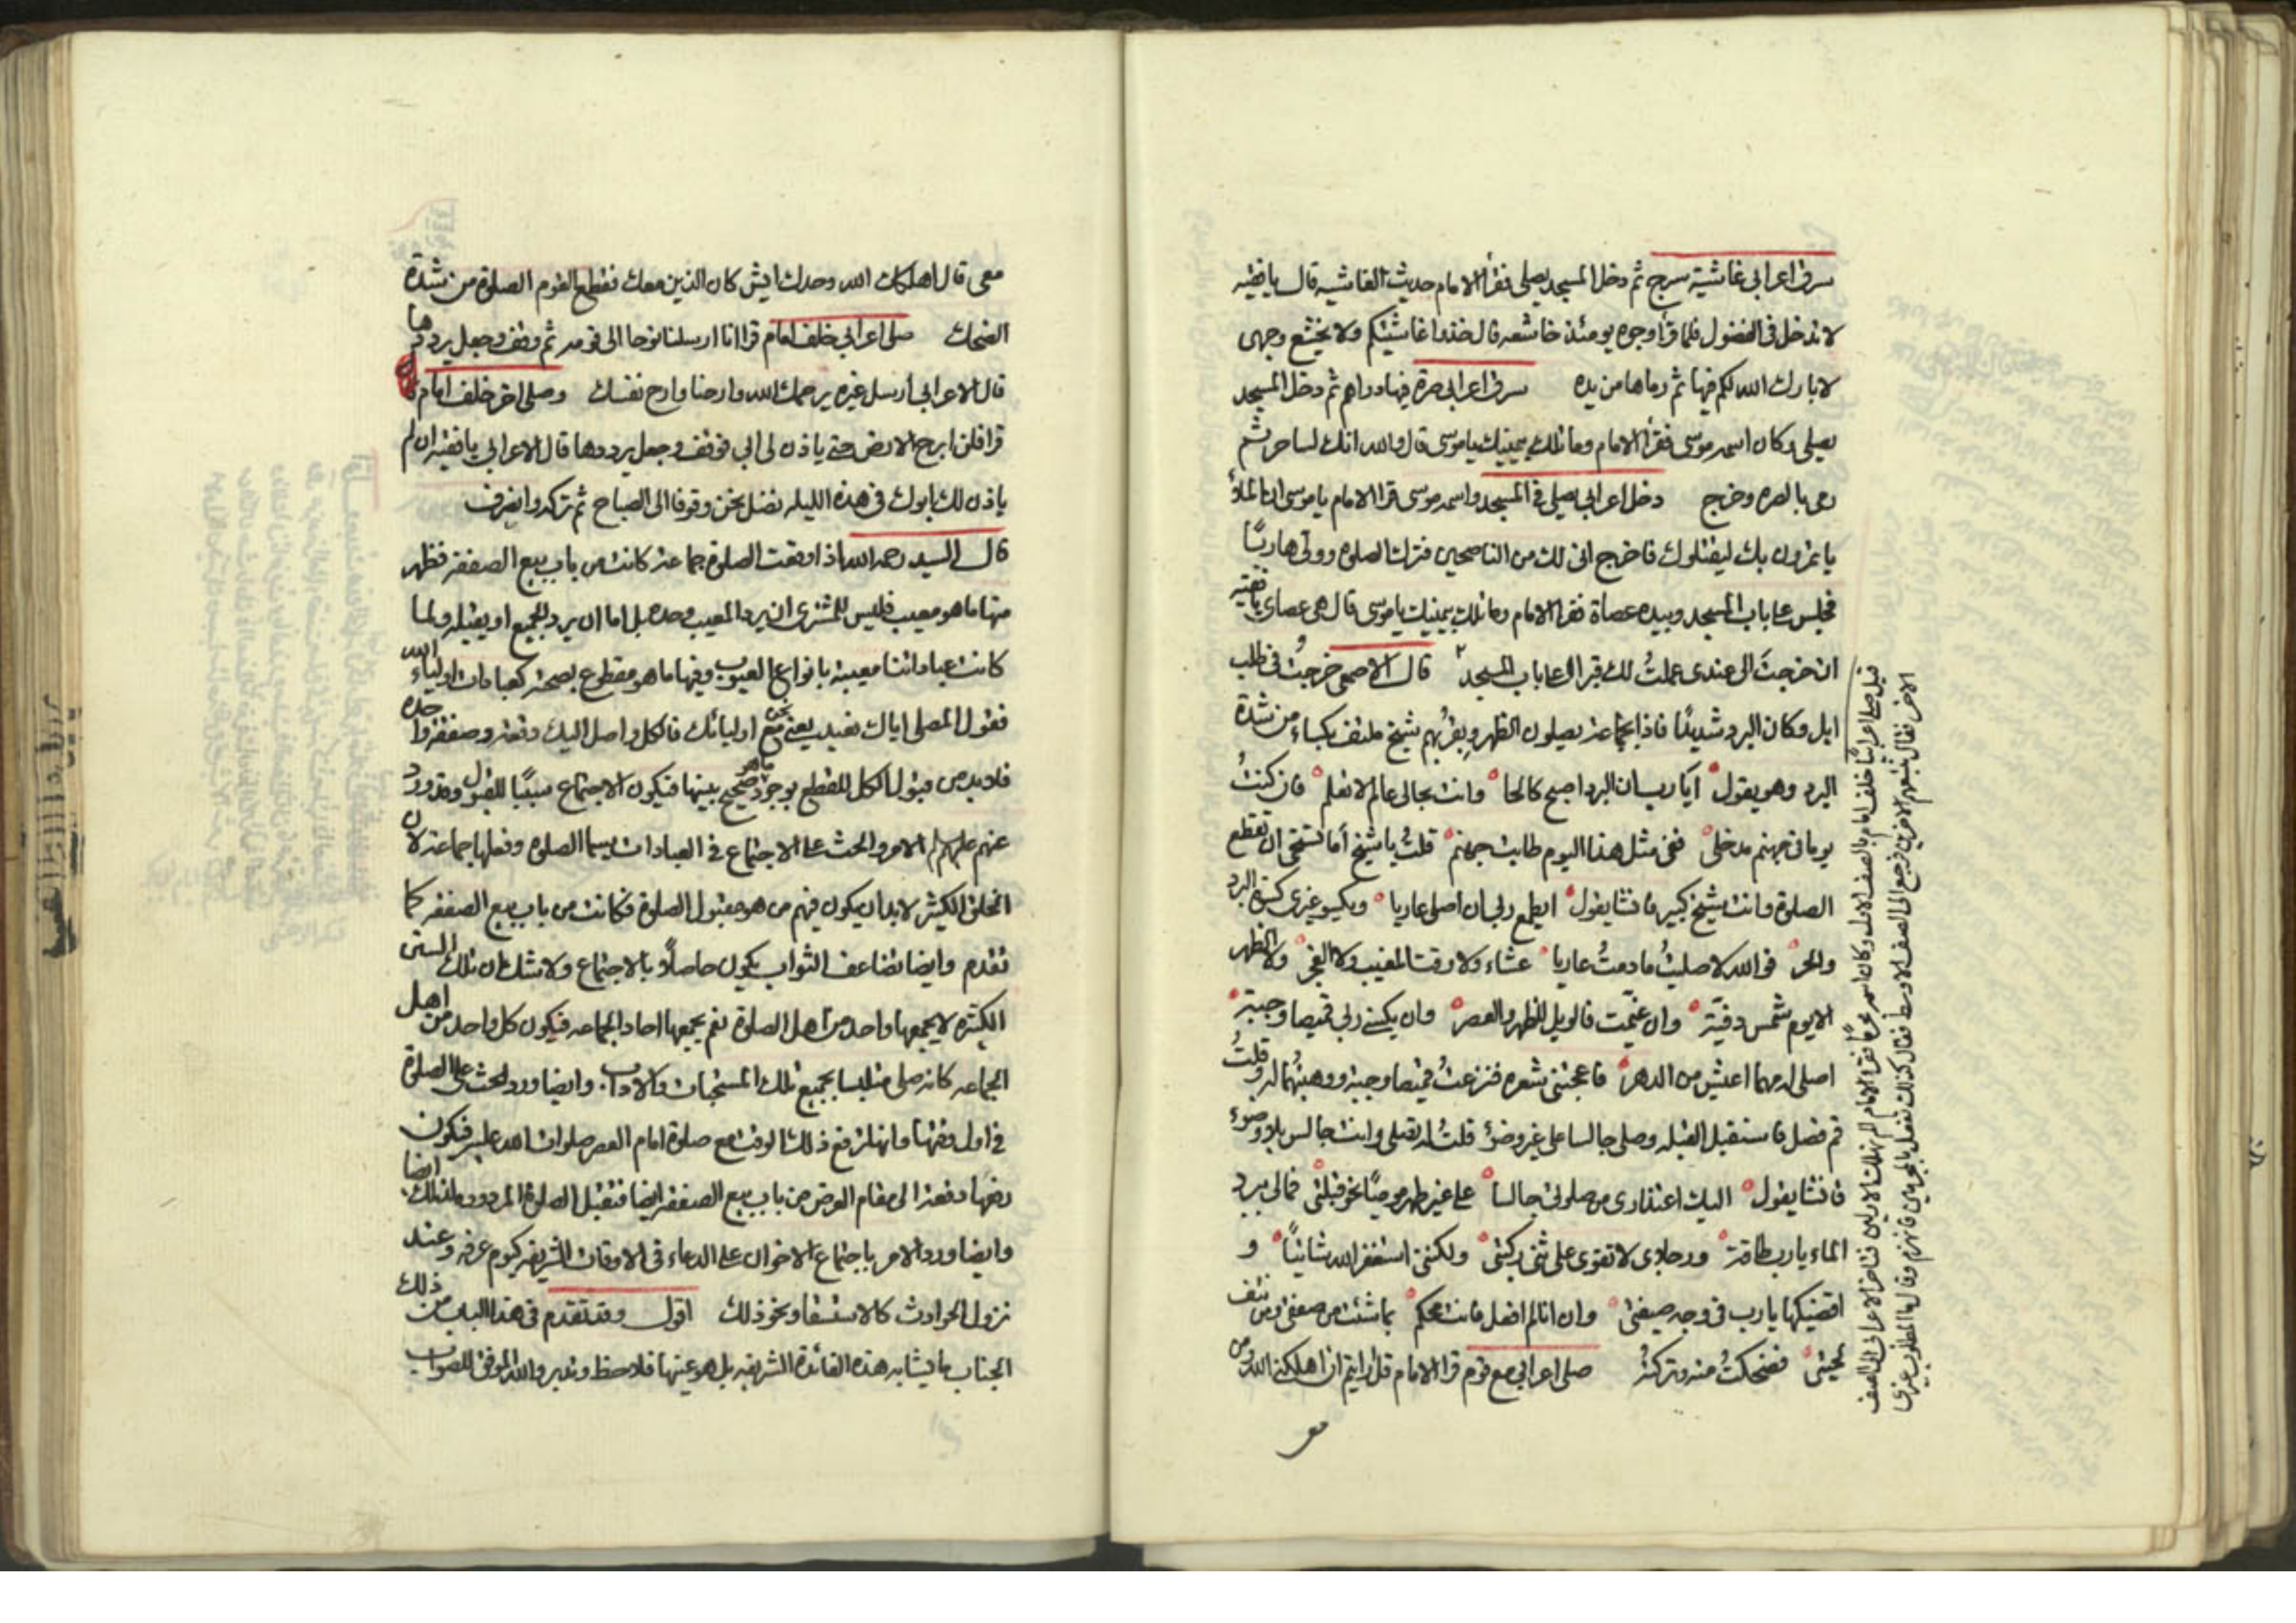 سرق اعرابي غاشية سرج ثم دخل المسجد يصلي فقرأ الامام حديث الغاشيه قال يا فقيه
لا تدخل في الفضول فلما قرأ وجوه يومئذ خاشعه قال خذوا غاشيتكم ولا يخشع وجهى
لا بارك الله لكم فيها ثم رماها من يده سرق اعرابي صرة فيها دراهم ثم دخل المسجد
يصلي وكان اسمه موسى فقرأ الامام وما تلك بيمينك ياموسى قال والله انك لساحر ثم
رمى بالصره وخرج دخل اعرابي يصلي في المسجد واسمه موسى قرا الامام يا موسى ان الملأ
ياتمرون بك ليقتلوك فاخرج اني لك من الناصحين فترك الصلوه وولى هاربًا
فجلس على باب المسجد وبيده عصاة فقرا الامام وما تلك بيمينك ياموسى قال هي عصاي يا فقيه
ان خرجتَ الى عندى عملتُ لك قبرا على باب المسجد قال الاصمعي خرجتُ في طلب
ابل وكان البرد شديدًا فاذا بجماعة يصلون الظهر وبقربهم شيخ ملتف بكساء من شدة
البرد وهو يقول ايا رب ان البرد اصبح كالحا وانت بحالي عالم لا تعلم فان كنتُ
يوما في جهنم مدخلي ففي مثل هذا اليوم طابت جهنم قلتُ يا شيخ أما تستحي ان تقطع
الصلوة وانت شيخ كبير فانشا يقول ايطمع ربي ان اصلي عاريا ويكسو غيري كسوة البرد
والحر فوالله لا صليتُ مادمتُ عاريا عشاء ولا وقت المغيب ولا الفجر ولا الظهر
الا يوم شمس دفيّة وان غيّمت فالويل للظهر والعصر وان يكسني ربي قميصا وجبة
اصلي له مهما اعيش من الدهر فاعجبني شعره فنزعتُ قميصا وجبة ووهبتُهما له وقلتُ
قم فصل فاستقبل القبله وصلى جالسا على غير وضوء قلتُ له تصلي وانت جالس بلا وضوء
فانشا يقول اليك اعتذارى من صلوتي جالسا على غير طهر موميًا نحو قبلتي فمالي ببرد
الماء يارب طاقة ورجلاى لا تقوى على ثني ركبتي ولكنني استغفر الله شاتيًا و
اقضيكها يارب في وجه صيفتي وان انا لم افعل فانت محكم بما شئت من صفعي ومن نتف
لحيتي فضحكتُ منه وتركتهُ صلى اعرابي مع قوم قرا الامام قل ارايتم ان اهلكني الله ومن
مع
قيل صلى اعرابيًا خلف امام بالصف الاول وكان اسمه مجرمًا فقرا الامام الم نهلك الاولين فتاخر الاعرابي الى الصف
الاخر فقال ثم نتبعهم الاخرين فرجع الى الصف الاوسط فقال كذلك نفعل بالمجرمين فانهزم وقال ما المطلوب غيري
معي قال اهلكك الله وحدك ايش كان الذين معك فقطع القوم الصلوة من شدة
الضحك صلى اعرابي خلف امام قرا انا ارسلنا نوحا الى قومه ثم وقف وجعل يرددها
قال الاعرابي أرسل غيره يرحمك الله وارحنا وارح نفسك وصلى اخر خلف امام
قرا فلن ابرح الارض حتى ياذن لي ابي فوقف وجعل يرددها قال الاعرابي يا فقيه ان لم
ياذن لك ابوك في هذه الليله نضل نحن وقوفا الى الصباح ثم تركه وانصرف
قال السيد رحمه الله اذا وقعت الصلوة جماعة كانت من باب بيع الصفقة فظهر
منها ما هو معيب فليس للمشتري ان يرد المعيب وحده بل اما ان يرد الجميع او يقبله ولما
كانت عباداتنا معيبة بانواع العيوب وفيها ما هو مقطوع بصحته كعبادات اولياء الله
فقول المصلي اياك نعبد يعني نحن مع اوليائك فالكل واصل اليك دفعة وصفقة واحده
فلابد من قبول الكل للقطع بوجود ما هو صحيح بينها فيكون الاجتماع سببًا للقبول وقد ورد
عنهم عليهم الامر والحث على الاجتماع في العبادات سيما الصلوه وفعلها جماعة لان
الخلق الكثير لابد ان يكون فيهم من هو مقبول الصلوة فكانت من باب بيع الصفقه كما
تقدم وايضا تضاعف الثواب يكون حاصلاً بالاجتماع ولا شك ان تلك السنن
الكثيره لا يجمعها واحد من اهل الصلوة نعم يجمعها احاد الجماعه فيكون كل واحد من اهل
الجماعه كانه صلى متلبسا بجميع تلك المستحبات والاداب وايضا ورد الحث على الصلوة
في اول وقتها وانها ترفع ذلك الوقت مع صلوة امام العصر صلوات الله عليه فيكون
رفعها دفعة الى مقام العرض من باب بيع الصفقه ايضا فتقبل الصلوة المردوده لذلك ايضا
وايضا ورد الامر باجتماع الاخوان على الدعاء في الاوقات الشريفه كيوم عرفه وعند
نزول الحوادث كالاستسقا ونحو ذلك اقول وقد تقدم في هذا الباب من ذلك
الجناب ما يشابه هذه الفائدة الشريفه بل هو عينها فلاحظ وتدبر والله الموفق للصواب